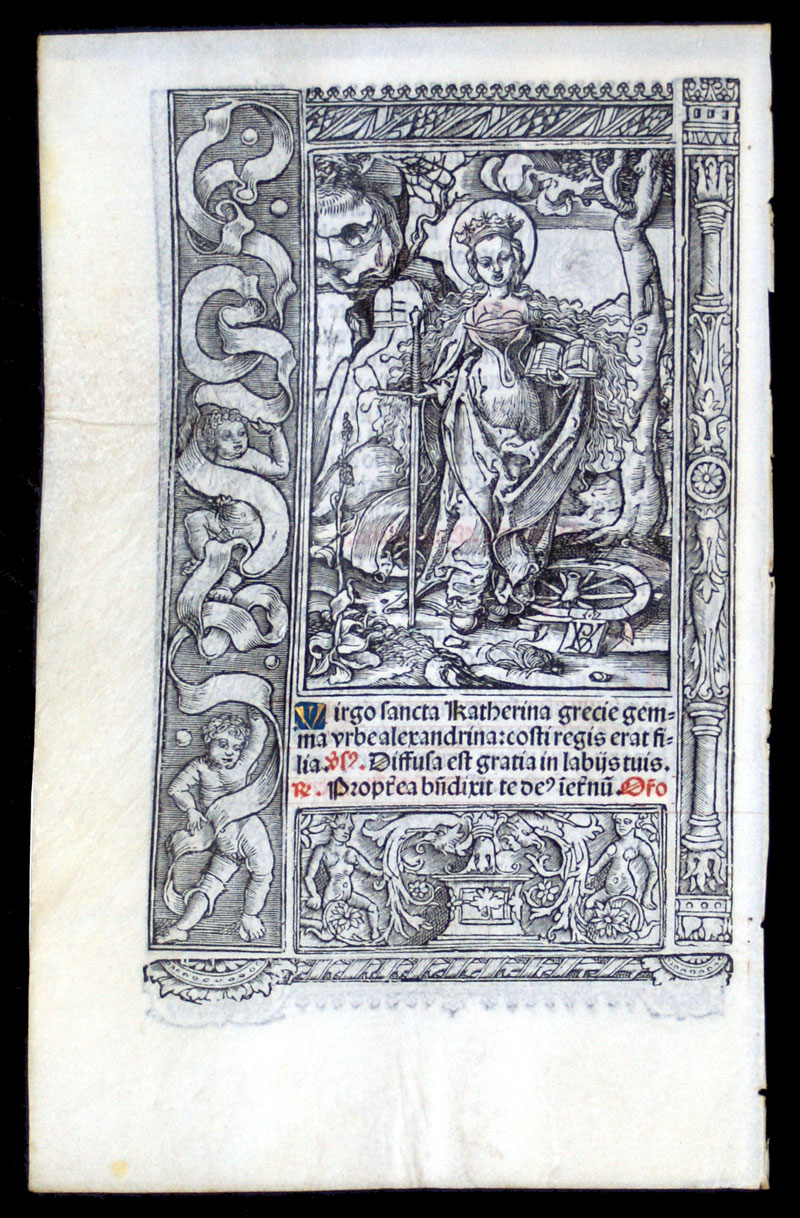 Virgo sancta Katherina grecie gem⸗
ma vrbe alexandrina: costi regis erat fi⸗
lia. Vsꝰ. Diffusa est gratia in labijs tuis.
Re. Propt̃ea bñdixit te deꝰ ĩet̃nũ. Oro